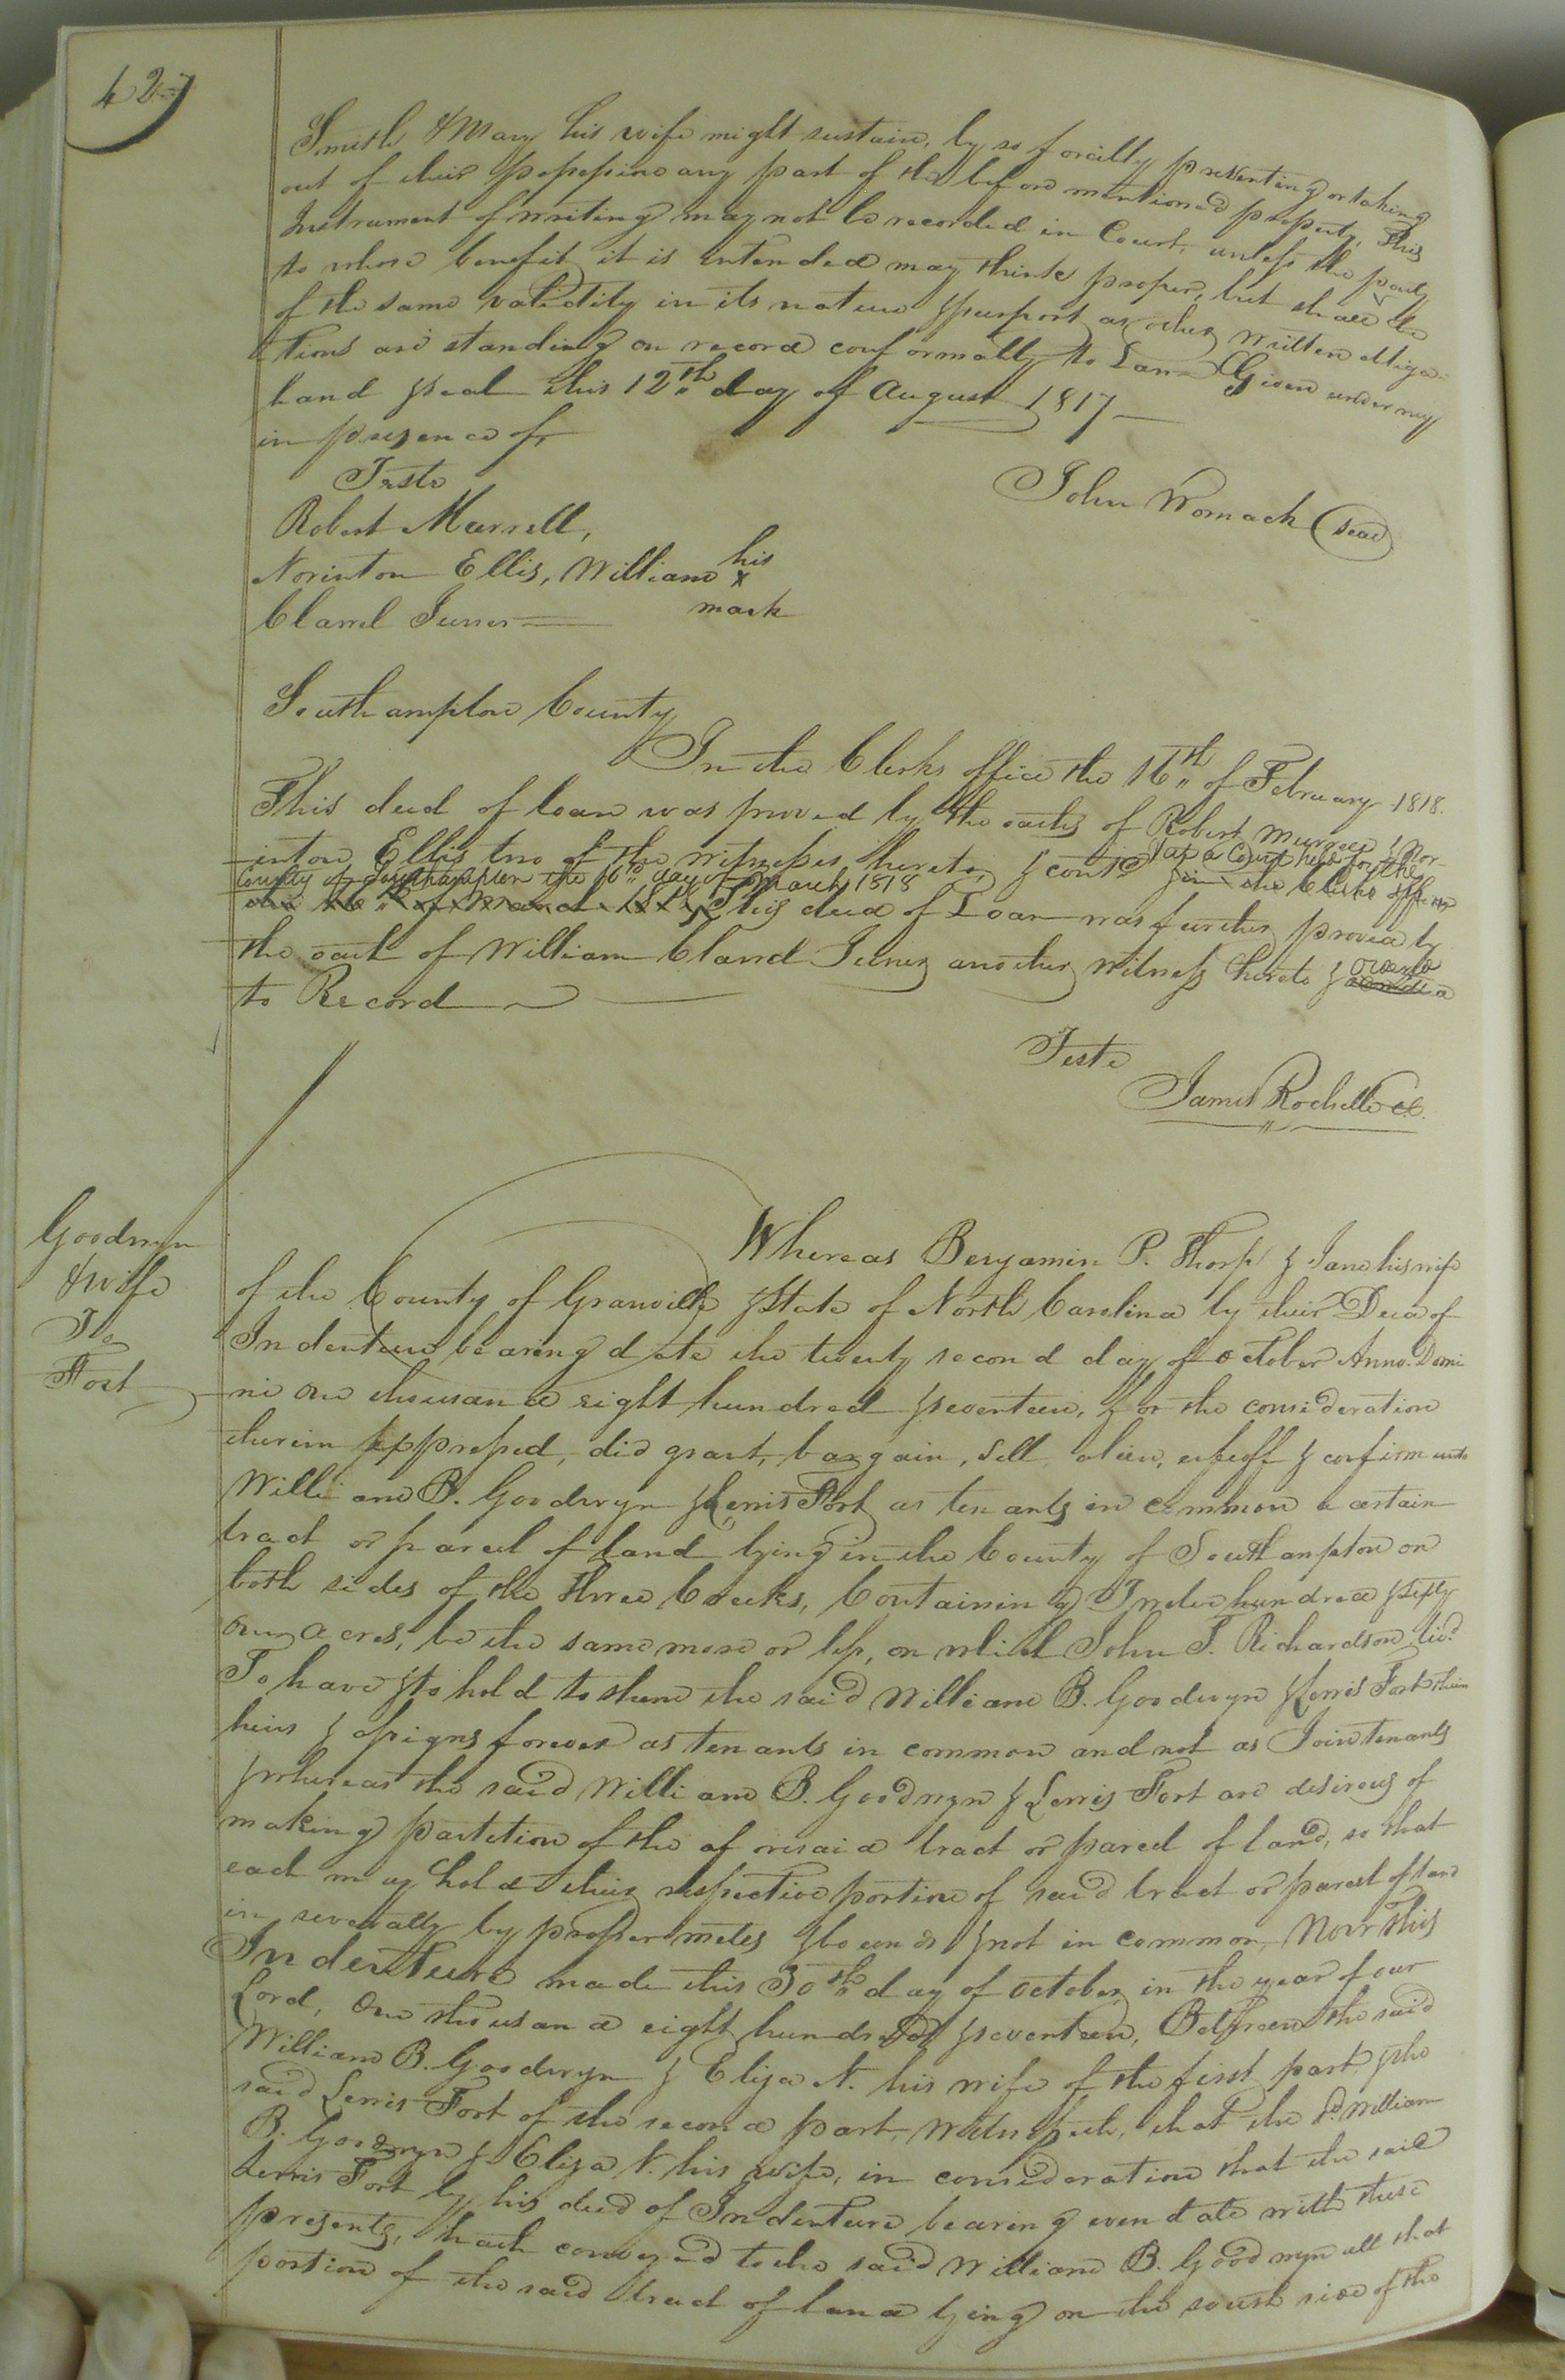 427
Smith & Mary his wife might sustain, by so forcilly presenting or taking
out of their possession any part of the before mentioned property, This
Instrument of writing may not be recorded in Court, unless the party
to whose benefit it is intended may think proper, but shall be
of the same validity in its nature & purport as other written obliga-
tions are standing on record conformally to Law Given under my
hand & seal this 12th day of August 1817
in presence of
Teste
John Womack (seal)
Robert Murrell,
Norinton Ellis, William his x mark
Bland Junr
Southampton County
In the Clerks office the 16th of February 1818.
This deed of loan was proved by the oaths of Robert Murrell & Nor-
inton Ellis two of the witnesses hereto, & contd & at a Court held for the
County of Southampton the 16th day of March 1818
This deed of Loan was further proved by
the oath of William Bland Junir another witness hereto & ordered
to Record
Teste
James Rochelle CC.
Goodwyn
& wife
To
Fort
Whereas Benjamin P. Thorp & Jane his wife
of the County of Granville & State of North Carolina by their Deed of
Indenture bearing date the twenty second day of October Anno. Domi
ni one thousand eight hundred & seventeen, for the consideration
therein expressed, did grant, bargain, sell, alien, enfeoff & confirm unto
William B. Goodwyn & Lewis Fort as tenants in common a certain
tract or parcel of land lying in the County of Southampton on
both sides of the three Creeks, Containing Twelve hundred & sixty
one acres, be the same more or less, on which John T. Richardson livd
To have & to hold to them the said William B. Goodwyn & Lewis Fort their
heirs & assigns forever as tenants in common and not as Joint tenants
& whereas the said William B. Goodwyn & Lewis Fort are desirous of
making partition of the aforesaid tract or parcel of land, so that
each may hold their respective portion of said tract or parcel of land
in severalty by proper metes & bounds & not in common, Now this
Indenture made this 30th day of October in the year of our
Lord, One thousand eight hundred & seventeen, Between the said
William B. Goodwyn & Eliza N. his wife of the first part, & the
said Lewis Fort of the second part, Witnesseth, that the sd William
B. Goodwyn & Eliza N. his wife, in consideration that the said
Lewis Fort by his deed of Indenture bearing even date with these
presents, hath conveyed to the said William B. Goodwyn all that
portion of the said tract of land lying on the south side of the